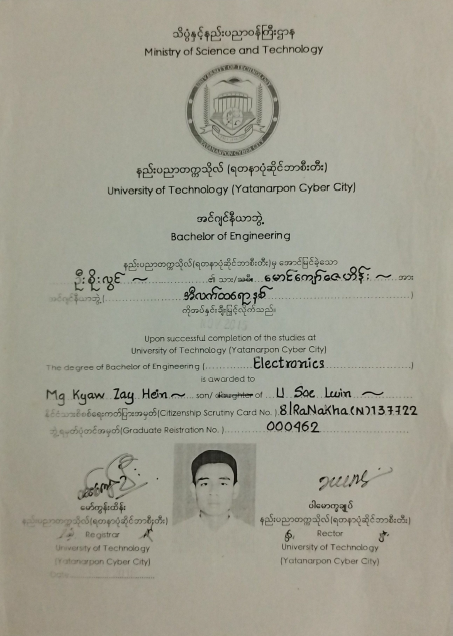 သိပ္ပံနှင့်နည်းပညာဝန်ကြီးဌာန
Ministry of Science and Technology
UNIVERSITY OF TECHNOLOGY
YATANARPON CYBER CITY
နည်းပညာတက္ကသိုလ် (ရတနာပုံဆိုင်ဘာစီးတီး)
University of Technology (Yatanarpon Cyber City)
အင်ဂျင်နီယာဘွဲ့
Bachelor of Engineering
နည်းပညာတက္ကသိုလ်(ရတနာပုံဆိုင်ဘာစီးတီး)မှ အောင်မြင်ခဲ့သော
ဦးစိုးလွင် ~ ၏ သား/သမီး မောင်ကျော်ဇေဟိန်း ~ အား
အင်ဂျင်နီယာဘွဲ့ ( အီလက်ထရောနစ် )
ကိုအပ်နှင်းချီးမြှင့်လိုက်သည်။
Upon successful completion of the studies at
University of Technology (Yatanarpon Cyber City)
The degree of Bachelor of Engineering ( Electronics )
is awarded to
Mg Kyaw Zay Hein ~ son/ daughter of U Soe Lwin ~
နိုင်ငံသားစိစစ်ရေးကတ်ပြားအမှတ်(Citizenship Scrutiny Card No. ) 8/RaNaKha(N)137722
ဘွဲ့ရမှတ်ပုံတင်အမှတ်(Graduate Reistration No. ) 000462
မော်ကွန်းထိန်း
နည်းပညာတက္ကသိုလ်(ရတနာပုံဆိုင်ဘာစီးတီး)
Registrar
University of Technology
(Yatanarpon Cyber City)
Date
ပါမောက္ခချုပ်
နည်းပညာတက္ကသိုလ်(ရတနာပုံဆိုင်ဘာစီးတီး)
Rector
University of Technology
(Yatanarpon Cyber City)